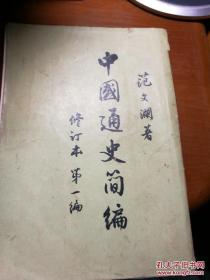 范文瀾著
中國通史简编
修訂本 第一編